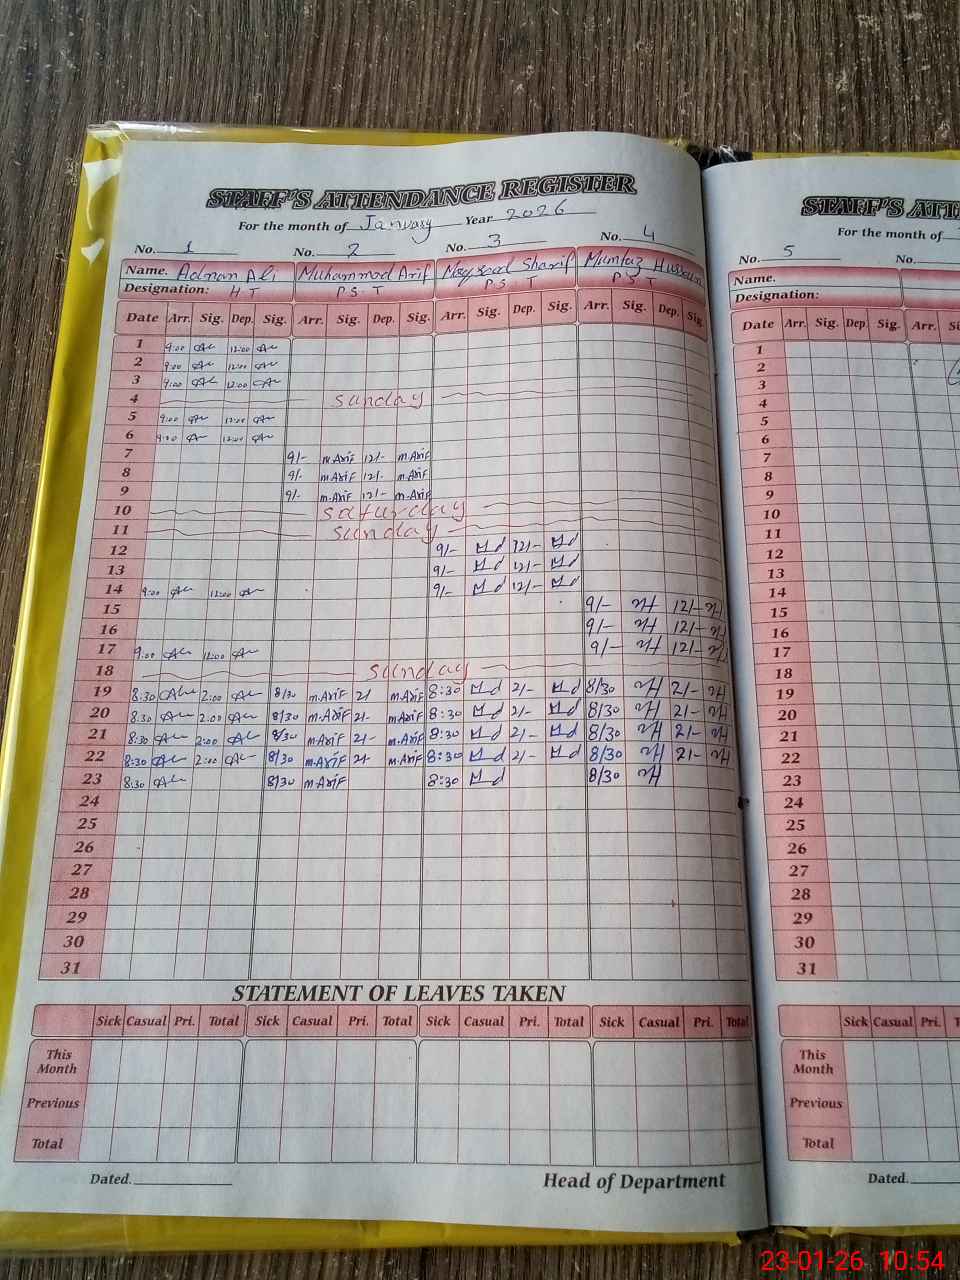 STAFF'S ATTENDANCE REGISTER
For the month of January Year 2026
No. 1 No. 2 No. 3 No. 4
Name. Adnan Ali Muhammad Arif Maqsood Sharif Mumtaz Hussain
Designation: H T P S T P S T P S T
Date Arr. Sig. Dep. Sig. Arr. Sig. Dep. Sig. Arr. Sig. Dep. Sig. Arr. Sig. Dep. Sig.
1 9:00 12:00
2 9:00 12:00
3 9:00 12:00
4 sunday
5 9:00 12:00
6 9:00 12:00
7 9/- m.Arif 12/- m.Arif
8 9/- m.Arif 12/- m.Arif
9 9/- m.Arif 12/- m.Arif
10 saturday
11 sunday
12 9/- 12/-
13 9/- 12/-
14 9:00 12:00 9/- 12/-
15 9/- 12/-
16 9/- 12/-
17 9:00 12:00 9/- 12/-
18 sunday
19 8:30 2:00 8/30 m.Arif 2/- m.Arif 8:30 2/- 8/30 2/-
20 8:30 2:00 8/30 m.Arif 2/- m.Arif 8:30 2/- 8/30 2/-
21 8:30 2:00 8/30 m.Arif 2/- m.Arif 8:30 2/- 8/30 2/-
22 8:30 2:00 8/30 m.Arif 2/- m.Arif 8:30 2/- 8/30 2/-
23 8:30 8/30 m.Arif 8:30 8/30
24
25
26
27
28
29
30
31
STATEMENT OF LEAVES TAKEN
Sick Casual Pri. Total Sick Casual Pri. Total Sick Casual Pri. Total Sick Casual Pri. Total
This Month
Previous
Total
Dated. Head of Department
STAFF'S ATT
For the month of
5 No.
Name.
Designation:
Date Arr. Sig. Dep. Sig. Arr.
1
2
3
4
5
6
7
8
9
10
11
12
13
14
15
16
17
18
19
20
21
22
23
24
25
26
27
28
29
30
31
Sick Casual Pri.
This Month
Previous
Total
Dated.
23-01-26 10:54